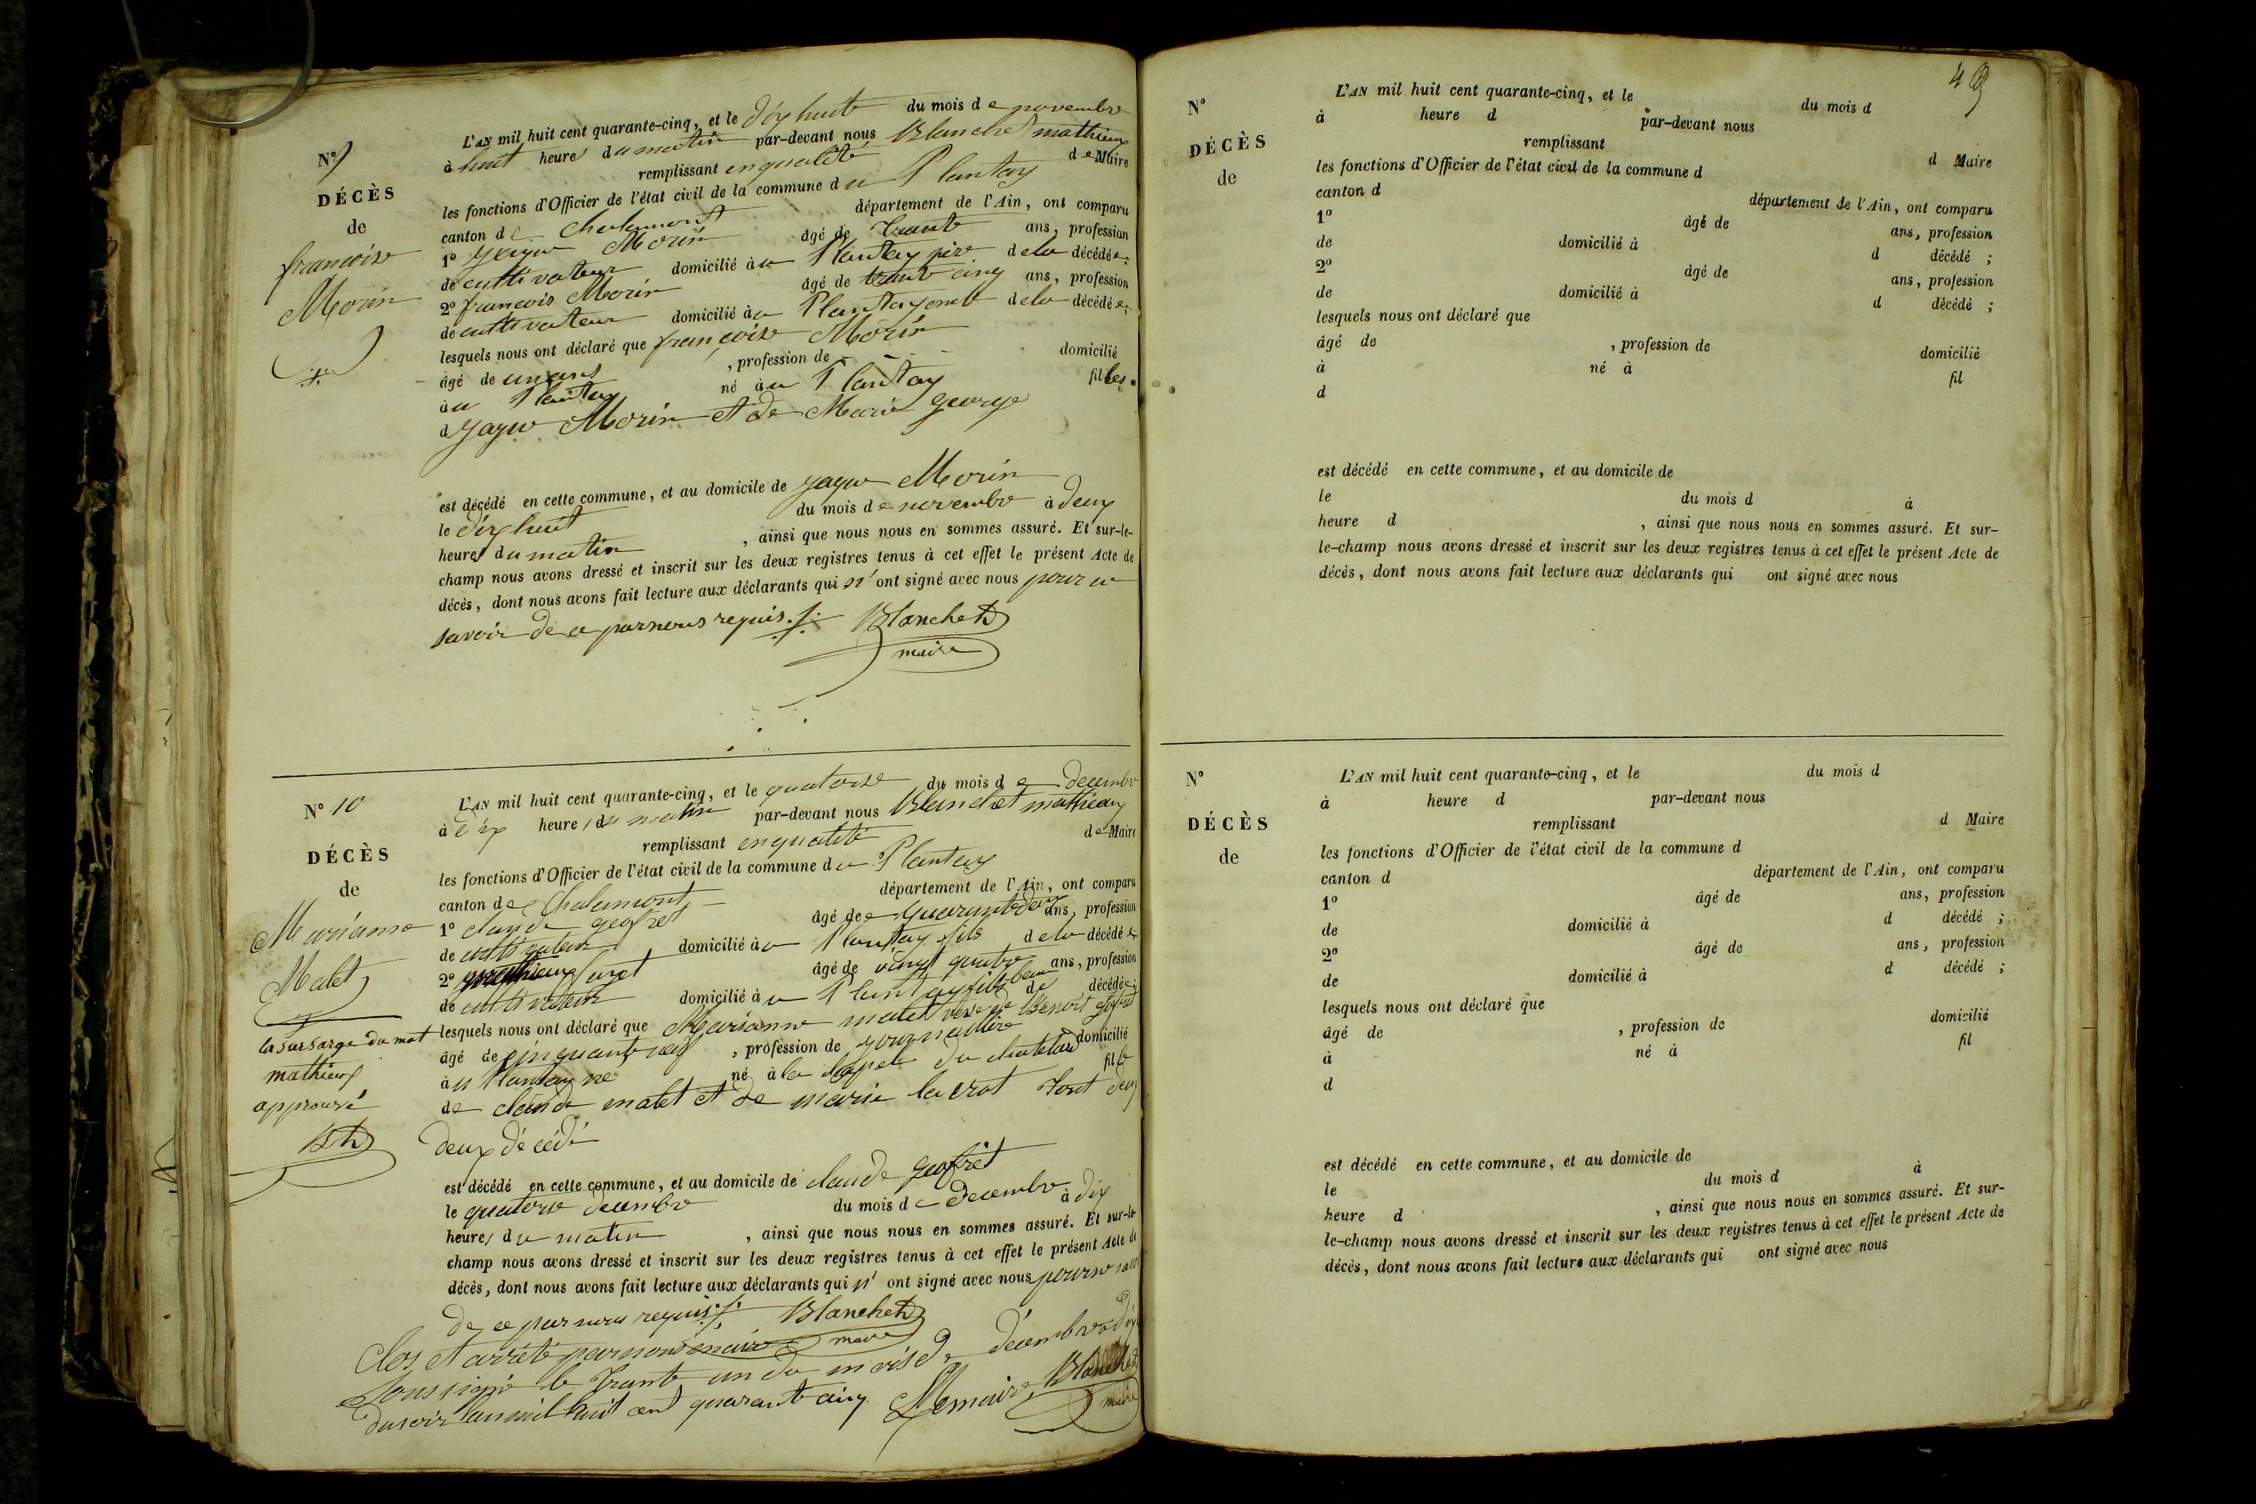 N° 9
DÉCÈS
de
francoise
Morin
L'AN mil huit cent quarante-cinq, et le dix huit du mois de novembre
à huit heures du matin par-devant nous Blanchet mathieux
remplissant en qualité de Maire
les fonctions d'Officier de l'état civil de la commune du Plantay
canton de Chalamont département de l'Ain, ont comparu
1° Morin âgé de trante ans, profession
de cultivateur domicilié au Plantay père de la décédée;
2° francois Morin âgé de cinq ans, profession
de cultivateur domicilié au Plantay de la décédée;
lesquels nous ont déclaré que francoise Morin
âgé de un ans , profession de domicilié
au Plantay né au Plantay filles
d Morin et de Marie george
est décédé en cette commune, et au domicile de Morin
le dix huit du mois de novembre à deux
heures du matin , ainsi que nous nous en sommes assuré. Et sur-le-
champ nous avons dressé et inscrit sur les deux registres tenus à cet effet le présent Acte de
décès, dont nous avons fait lecture aux déclarants qui n' ont signé avec nous pour ce
savoir de ce par nous requis ./. Blanchet
maire
N° 10
DÉCÈS
de
Marianne
Malet
la sursarge du mot
mathieux
approuvé
L'AN mil huit cent quarante-cinq, et le quatorse du mois de decembre
à dix heures du matin par-devant nous Blanchet mathieux
remplissant en qualité de Maire
les fonctions d'Officier de l'état civil de la commune du Plantay
canton de Chalamont département de l'Ain, ont comparu
1° claude geofret âgé de quarante deux ans, profession
de cultivateur domicilié au Plantay fils de la décédée
2° mathieux âgé de vingt quatre ans, profession
de cultivateur domicilié au Plantay fils de décédée;
lesquels nous ont déclaré que Marianne malet Benoit
âgé de cinquante , profession de journalière domicilié
au Plantay né à la chapel du chatelard fille
de claude malet et de marie la crot tout deux
deux décédé
est décédé en cette commune, et au domicile de claude geofret
le quatorse decembre du mois de decembre à dix
heures du matin , ainsi que nous nous en sommes assuré. Et sur-le-
champ nous avons dressé et inscrit sur les deux registres tenus à cet effet le présent Acte de
décès, dont nous avons fait lecture aux déclarants qui n' ont signé avec nous pour
de ce par nous requis ./. Blanchet
maire
Clos et arrêté par nous maire
soussigné le trante un du mois de décembre à dix
du soir l'an mil huit cent quarante cinq Le maire Blanchet
maire
N°
DÉCÈS
de
L'AN mil huit cent quarante-cinq, et le du mois d
à heure d par-devant nous
remplissant d Maire
les fonctions d'Officier de l'état civil de la commune d
canton d département de l'Ain, ont comparu
1° âgé de ans, profession
de domicilié à d décédé ;
2° âgé de ans, profession
de domicilié à d décédé ;
lesquels nous ont déclaré que
âgé de , profession de domicilié
à né à fil
d
est décédé en cette commune, et au domicile de
le du mois d à
heure d , ainsi que nous nous en sommes assuré. Et sur-
le-champ nous avons dressé et inscrit sur les deux registres tenus à cet effet le présent Acte de
décès, dont nous avons fait lecture aux déclarants qui ont signé avec nous
N°
DÉCÈS
de
L'AN mil huit cent quarante-cinq, et le du mois d
à heure d par-devant nous
remplissant d Maire
les fonctions d'Officier de l'état civil de la commune d
canton d département de l'Ain, ont comparu
1° âgé de ans, profession
de domicilié à d décédé ;
2° âgé de ans, profession
de domicilié à d décédé ;
lesquels nous ont déclaré que
âgé de , profession de domicilié
à né à fil
d
est décédé en cette commune, et au domicile de
le du mois d à
heure d , ainsi que nous nous en sommes assuré. Et sur-
le-champ nous avons dressé et inscrit sur les deux registres tenus à cet effet le présent Acte de
décès, dont nous avons fait lecture aux déclarants qui ont signé avec nous